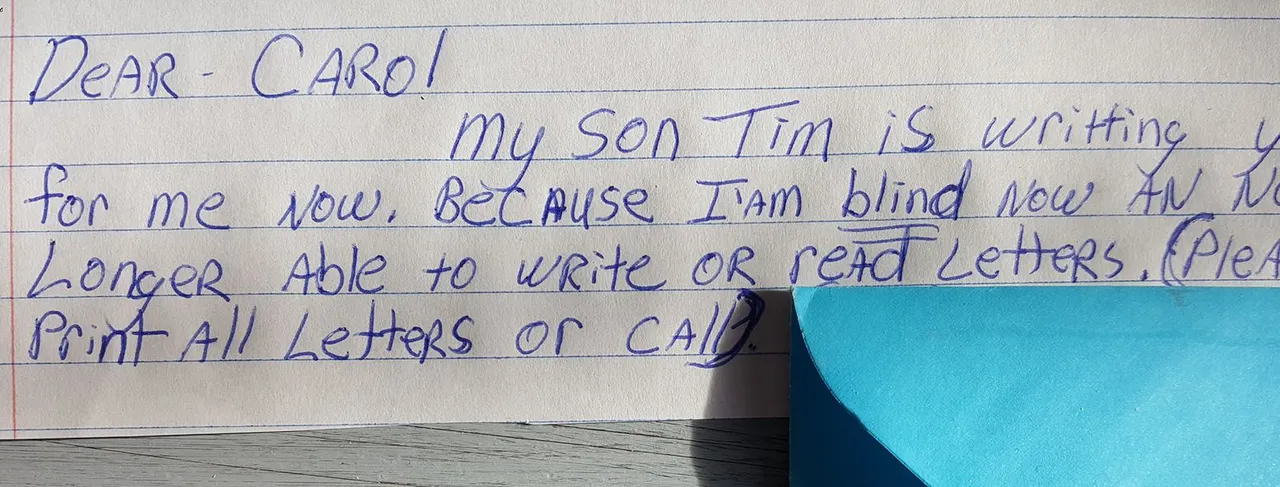 DeAR - CAROl
my Son Tim is writting y
for me Now. BecAuse I'AM blind Now AN No
LongeR Able to WRite OR reAd LetteRs. (PleA
Print All LetteRs or CAll).